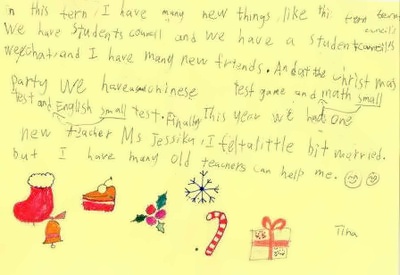 in this term, I have many new things, like this term
We have students council and we have a student council's
wechat. and I have many new friends. And at the christmas
party we have a chinese test game and math small
test and English small test. Finally This year we has one
new teacher Ms Jessika, I felt a little bit worried.
but I have many old teachers can help me.
Tina